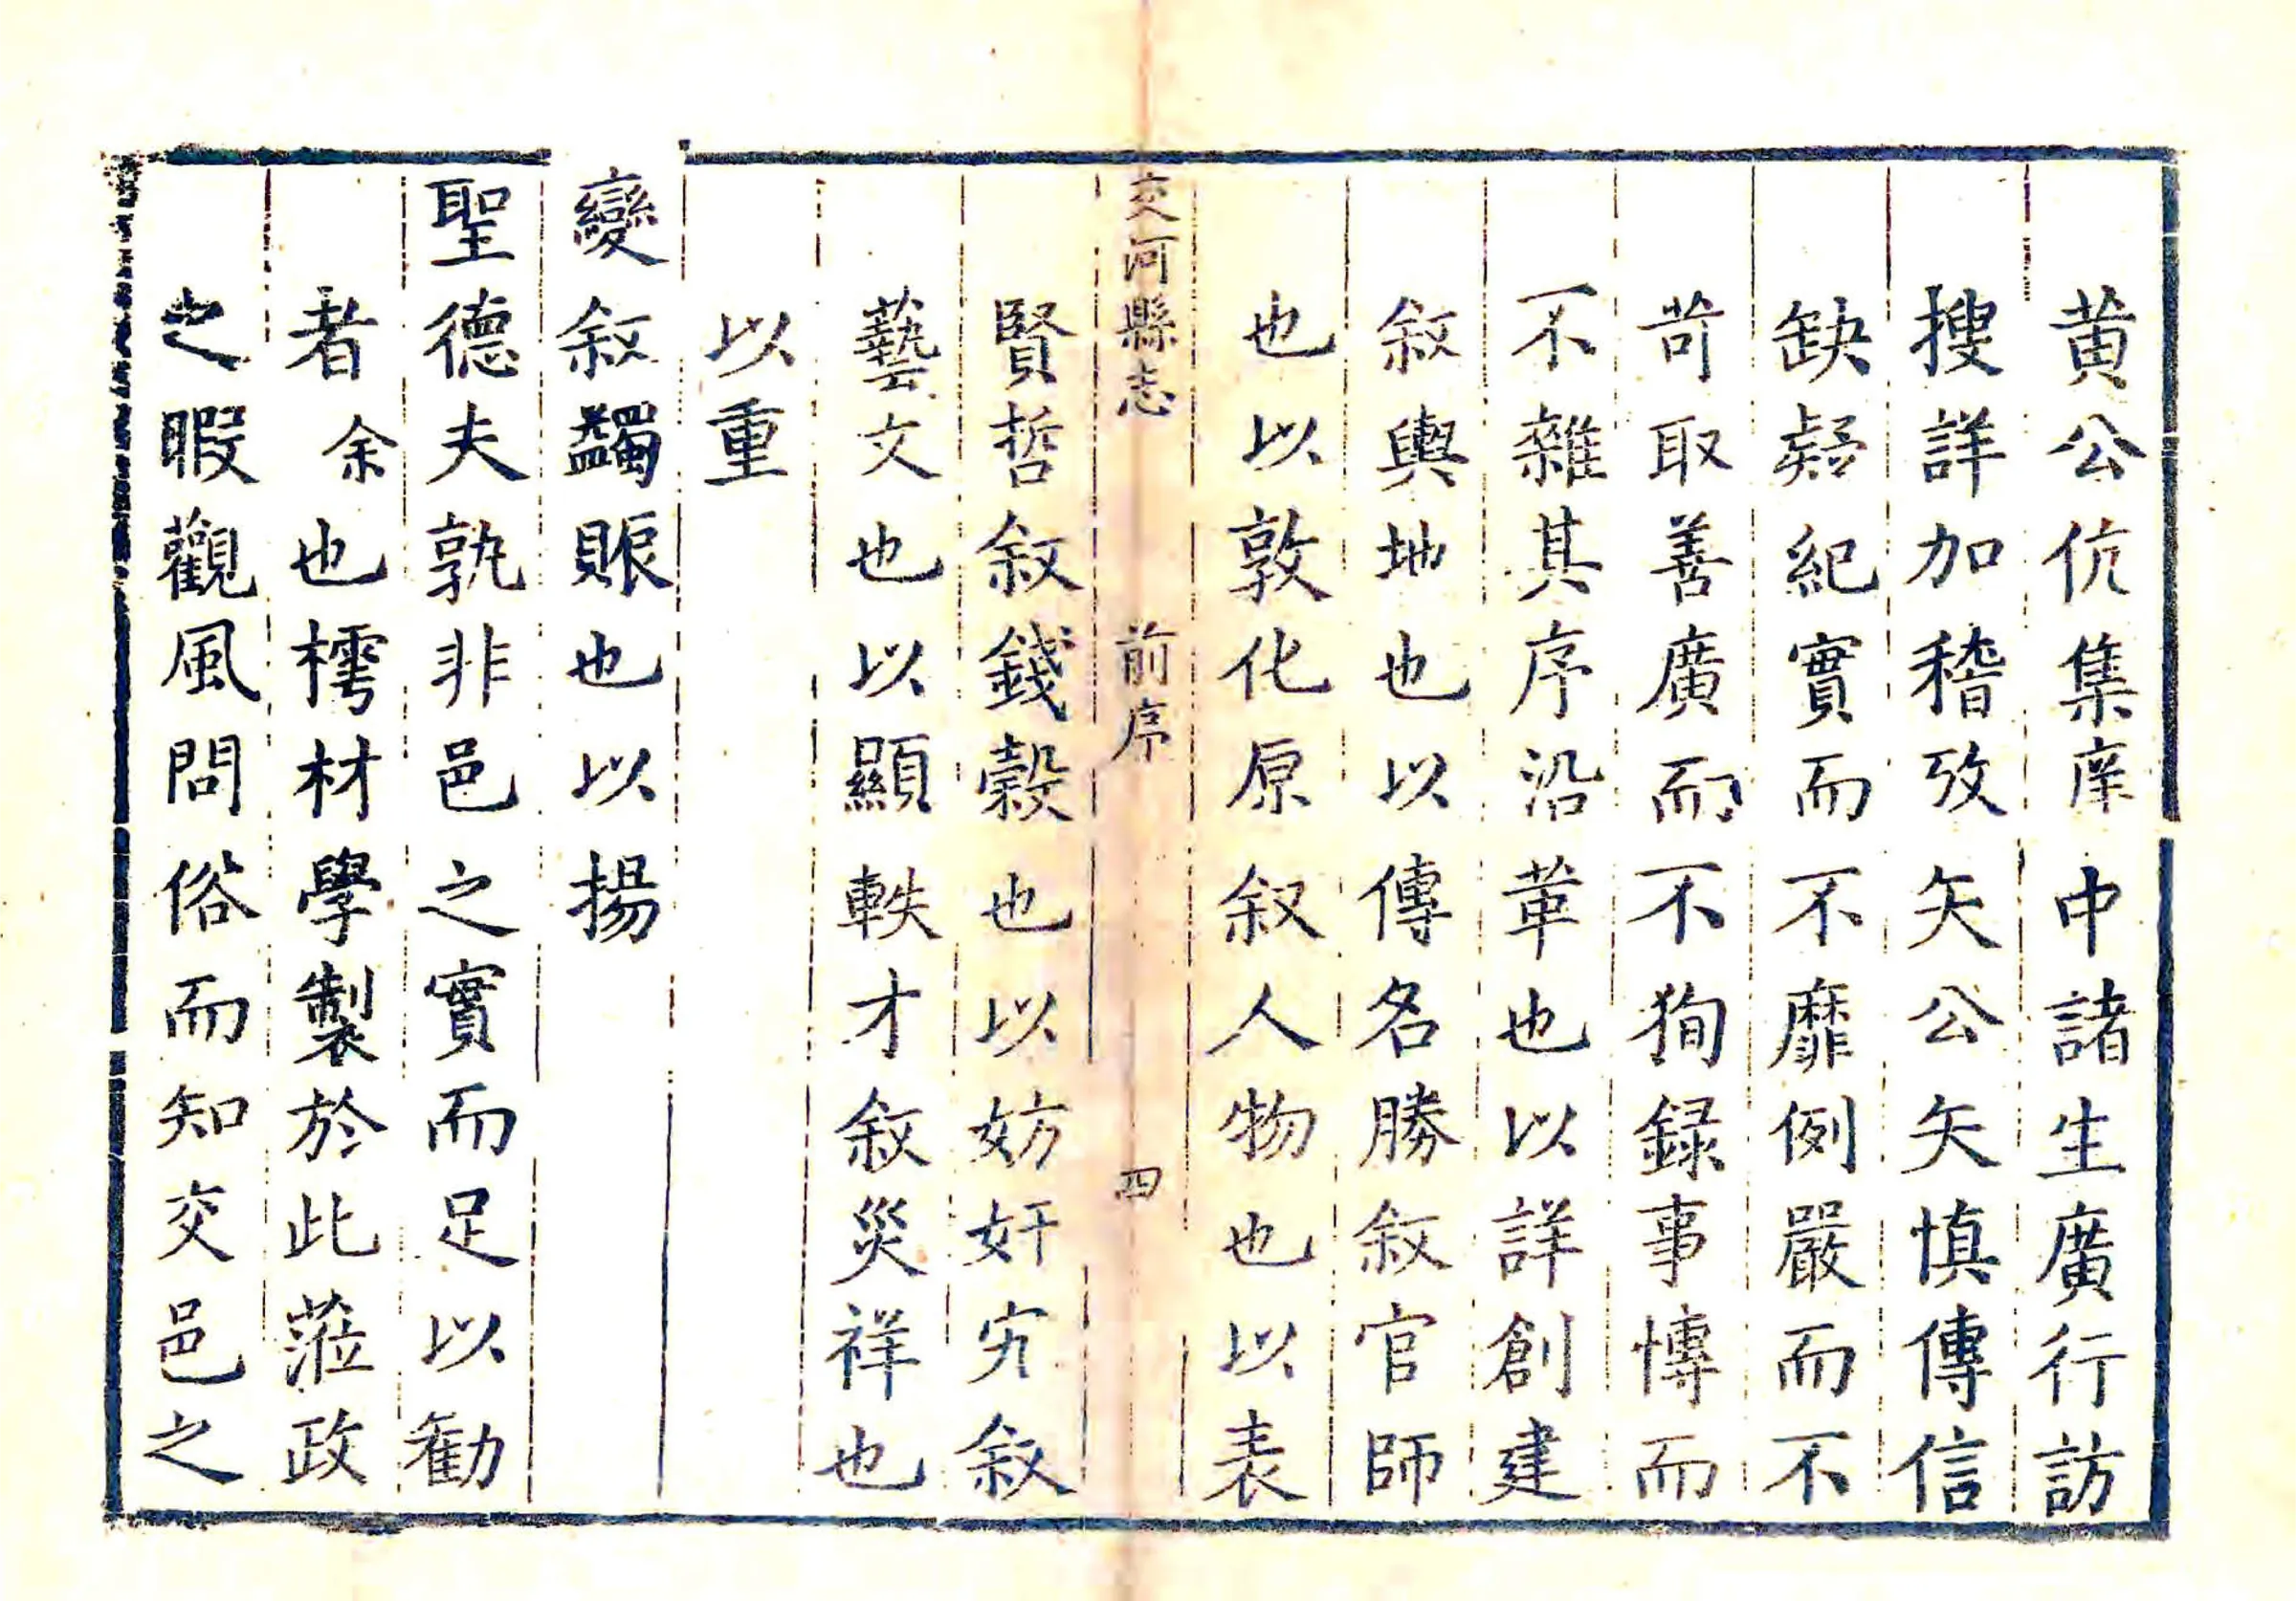 黄公伉集庠中諸生廣行訪
搜詳加稽攷矢公矢慎傳信
缺疑紀實而不靡例嚴而不
苛取善廣而不狥録事慱而
不雜其序沿革也以詳創建
叙輿地也以傳名勝叙官師
也以敦化原叙人物也以表
交河縣志 前序 四
賢哲叙錢榖也以妨奸宄叙
藝文也以顯軼才叙災祥也
以重
變叙蠲賑也以揚
聖德夫孰非邑之實而足以勸
者余也樗材學製於此蒞政
之暇觀風問俗而知交邑之